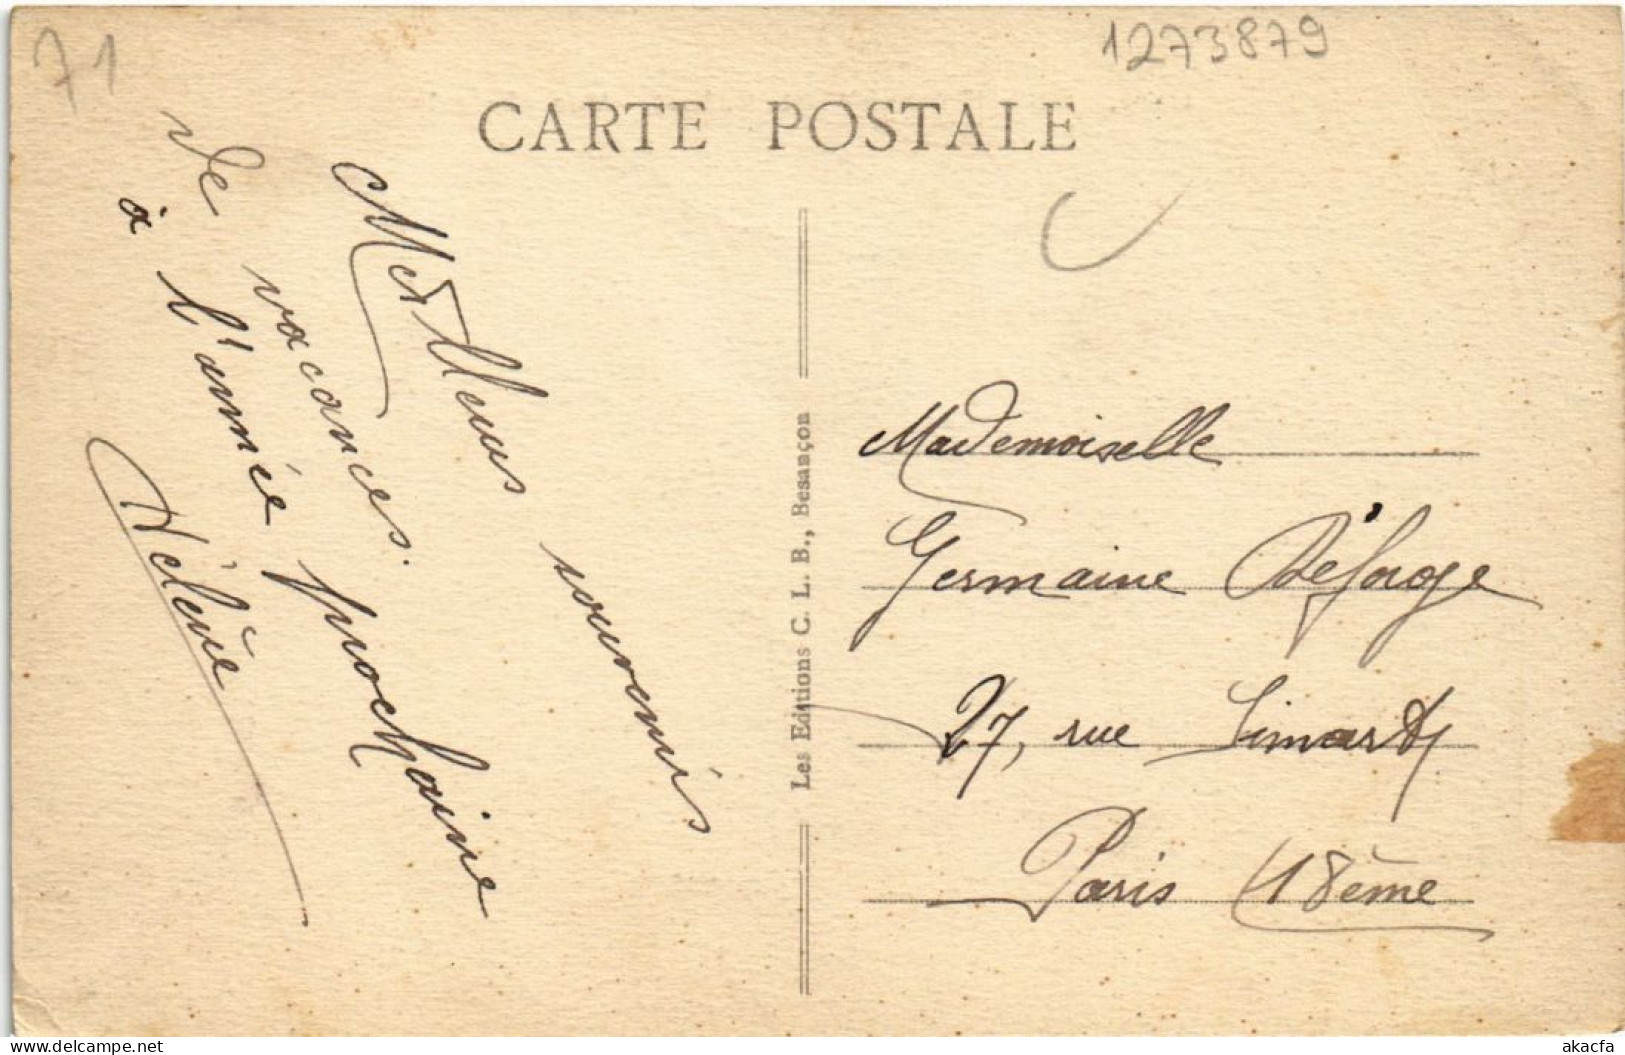 71
1273879
CARTE POSTALE
Meilleurs souvenirs
de vacances.
à l'année prochaine
Hélène
Les Editions C. L. B., Besançon
Mademoiselle
Germaine Défarge
27, rue Simart
Paris (18ème
akacfa